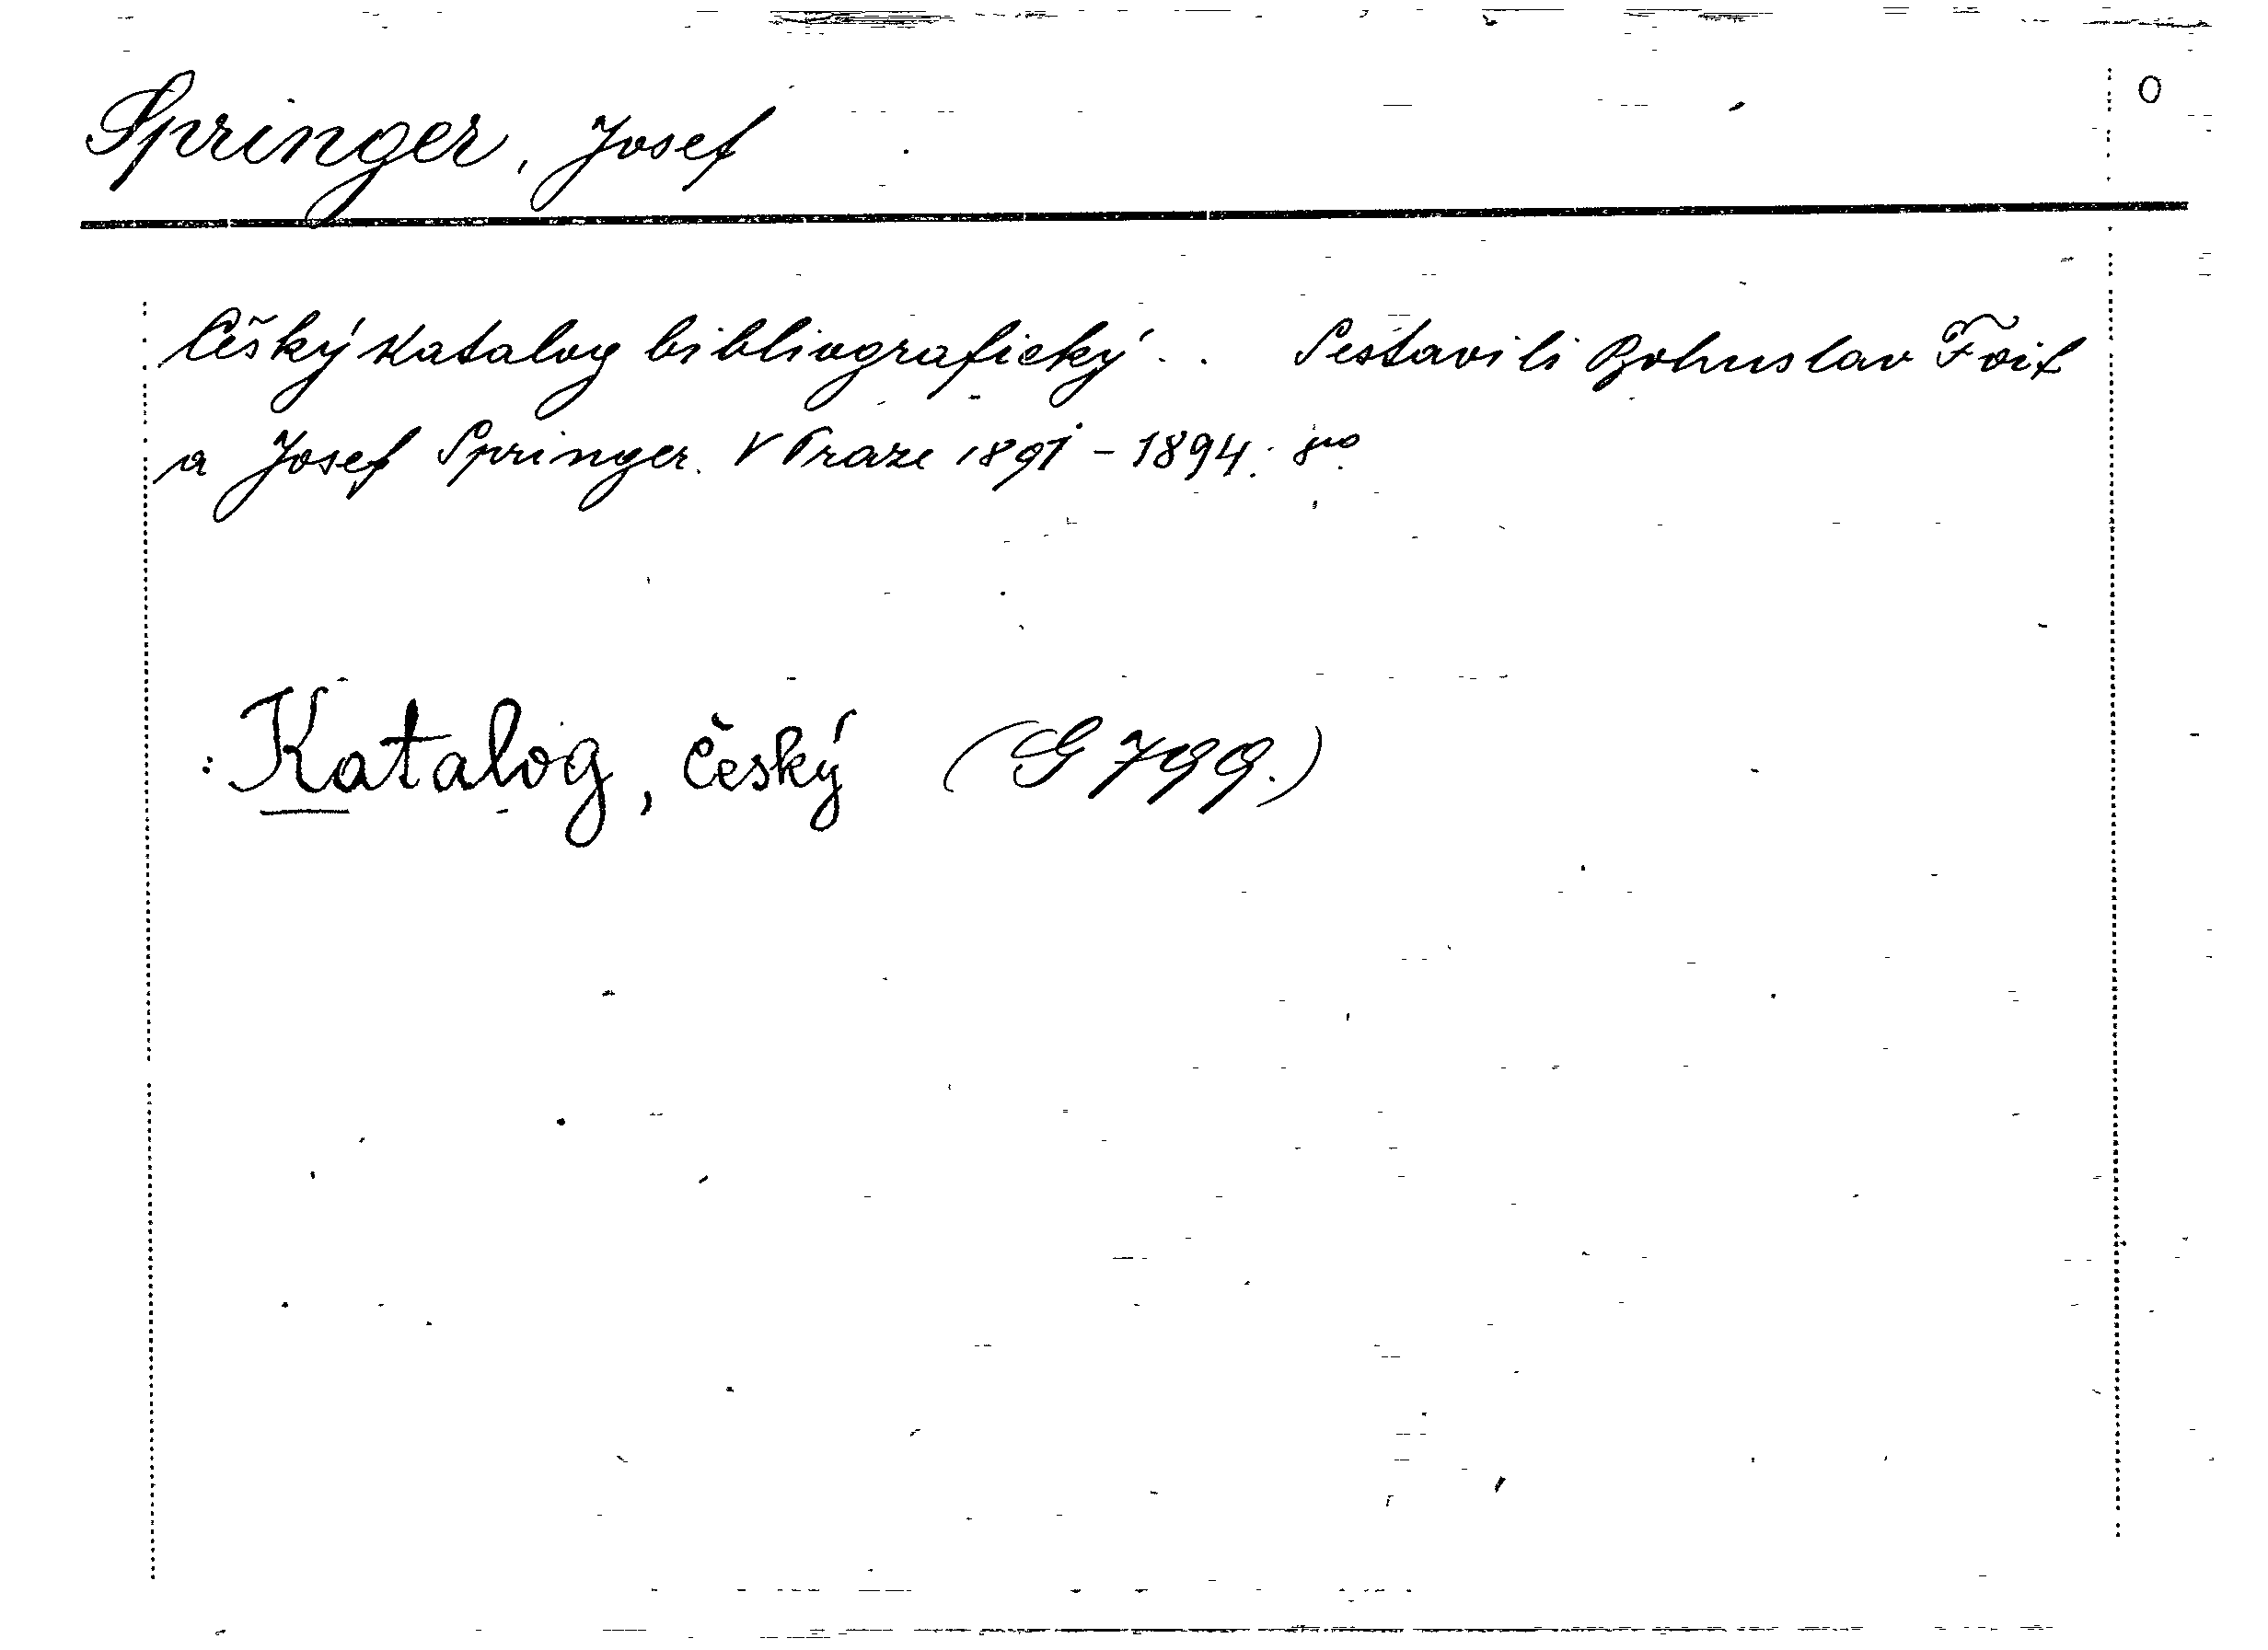 Springer, Josef
O
Český katalog bibliografický .. Sestavili Bohuslav Foit
a Josef Springer. V Praze 1891 - 1894. 8vo
: Katalog, český (G 799.)